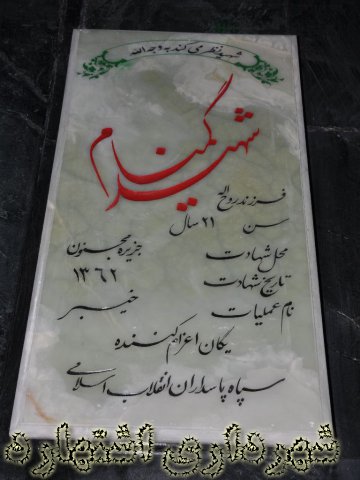 شهید نظر می کند به وجه الله
شهید گمنام
فرزند روح اله
سن ۲۱ سال
محل شهادت جزیره مجنون
تاریخ شهادت ۱۳۶۲
نام عملیات خیبر
یگان اعزام کننده
سپاه پاسداران انقلاب اسلامی
شهرداری اشتهارد